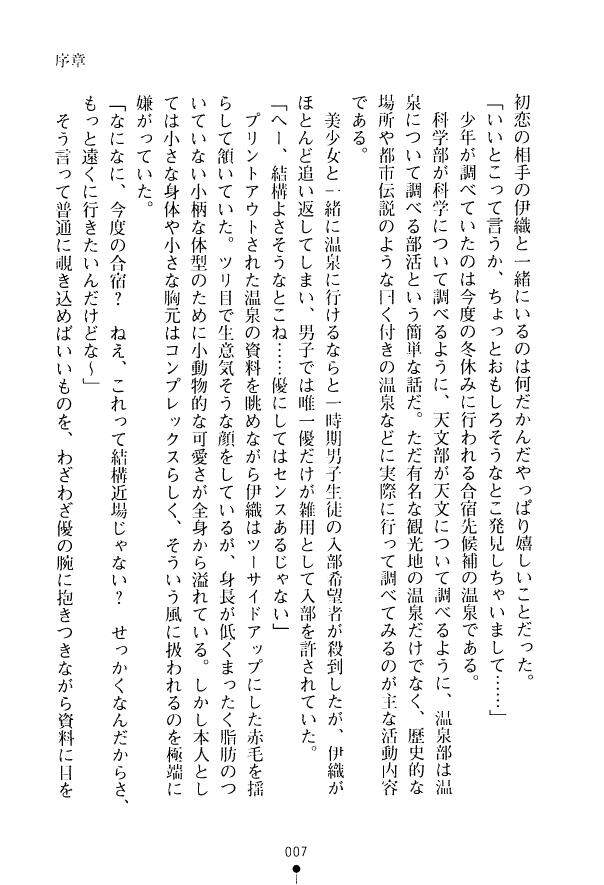 序章
初恋の相手の伊織と一緒にいるのは何だかんだやっぱり嬉しいことだった。
「いいとこって言うか、ちょっとおもしろそうなとこ発見しちゃいまして……」
少年が調べていたのは今度の冬休みに行われる合宿先候補の温泉である。
科学部が科学について調べるように、天文部が天文について調べるように、温泉部は温
泉について調べる部活という簡単な話だ。ただ有名な観光地の温泉だけでなく、歴史的な
場所や都市伝説のような曰く付きの温泉などに実際に行って調べてみるのが主な活動内容
である。
美少女と一緒に温泉に行けるならと一時期男子生徒の入部希望者が殺到したが、伊織が
ほとんど追い返してしまい、男子では唯一優だけが雑用として入部を許されていた。
「へー、結構よさそうなとこね……優にしてはセンスあるじゃない」
プリントアウトされた温泉の資料を眺めながら伊織はツーサイドアップにした赤毛を揺
らして頷いていた。ツリ目で生意気そうな顔をしているが、身長が低くまったく脂肪のつ
いていない小柄な体型のために小動物的な可愛さが全身から溢れている。しかし本人とし
ては小さな身体や小さな胸元はコンプレックスらしく、そういう風に扱われるのを極端に
嫌がっていた。
「なになに、今度の合宿？　ねえ、これって結構近場じゃない？　せっかくなんだからさ、
もっと遠くに行きたいんだけどな～」
そう言って普通に覗き込めばいいものを、わざわざ優の腕に抱きつきながら資料に目を
007